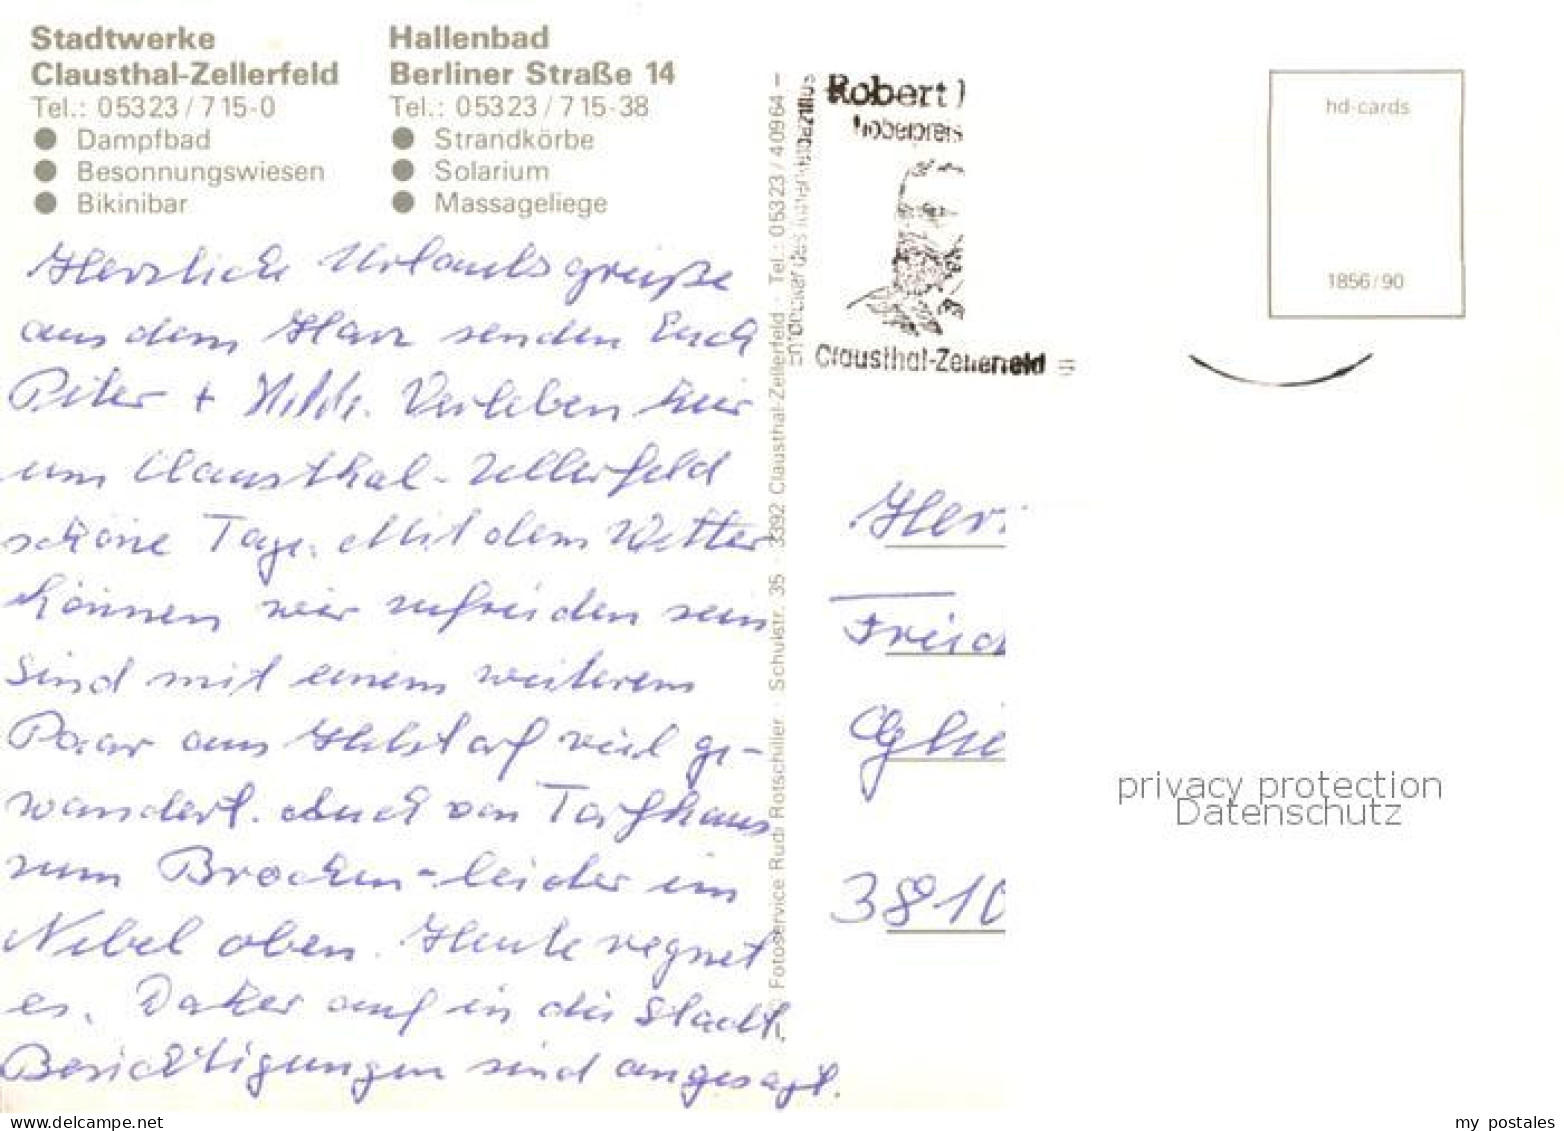 Stadtwerke
Clausthal-Zellerfeld
Tel.: 05323/715-0
● Dampfbad
● Besonnungswiesen
● Bikinibar
Hallenbad
Berliner Straße 14
Tel.: 05323/715-38
● Strandkörbe
● Solarium
● Massageliege
Herzliche Urlaubsgrüße
aus dem Harz senden Euch
Peter + Hilde. Verleben hier
um Clausthal-Zellerfeld
schöne Tage. Mit dem Wetter
können wir zufrieden sein
Sind mit einem weiteren
Paar aus viel ge-
wandert. Auch von Torfhaus
zum Brocken - leider im
Nebel oben. Heute regnet
es. Daher auf in die Stadt.
Besichtigungen sind angesagt.
© Fotoservice Rudi Rotschiller · Schulstr. 35 · 3392 Clausthal-Zellerfeld · Tel.: 05323/40964
Robert
Nobelpreis
Entdecker des
Clausthal-Zellerfeld
hd-cards
1856/90
Herr
Fried
3810
privacy protection
Datenschutz
www.delcampe.net
my_postales